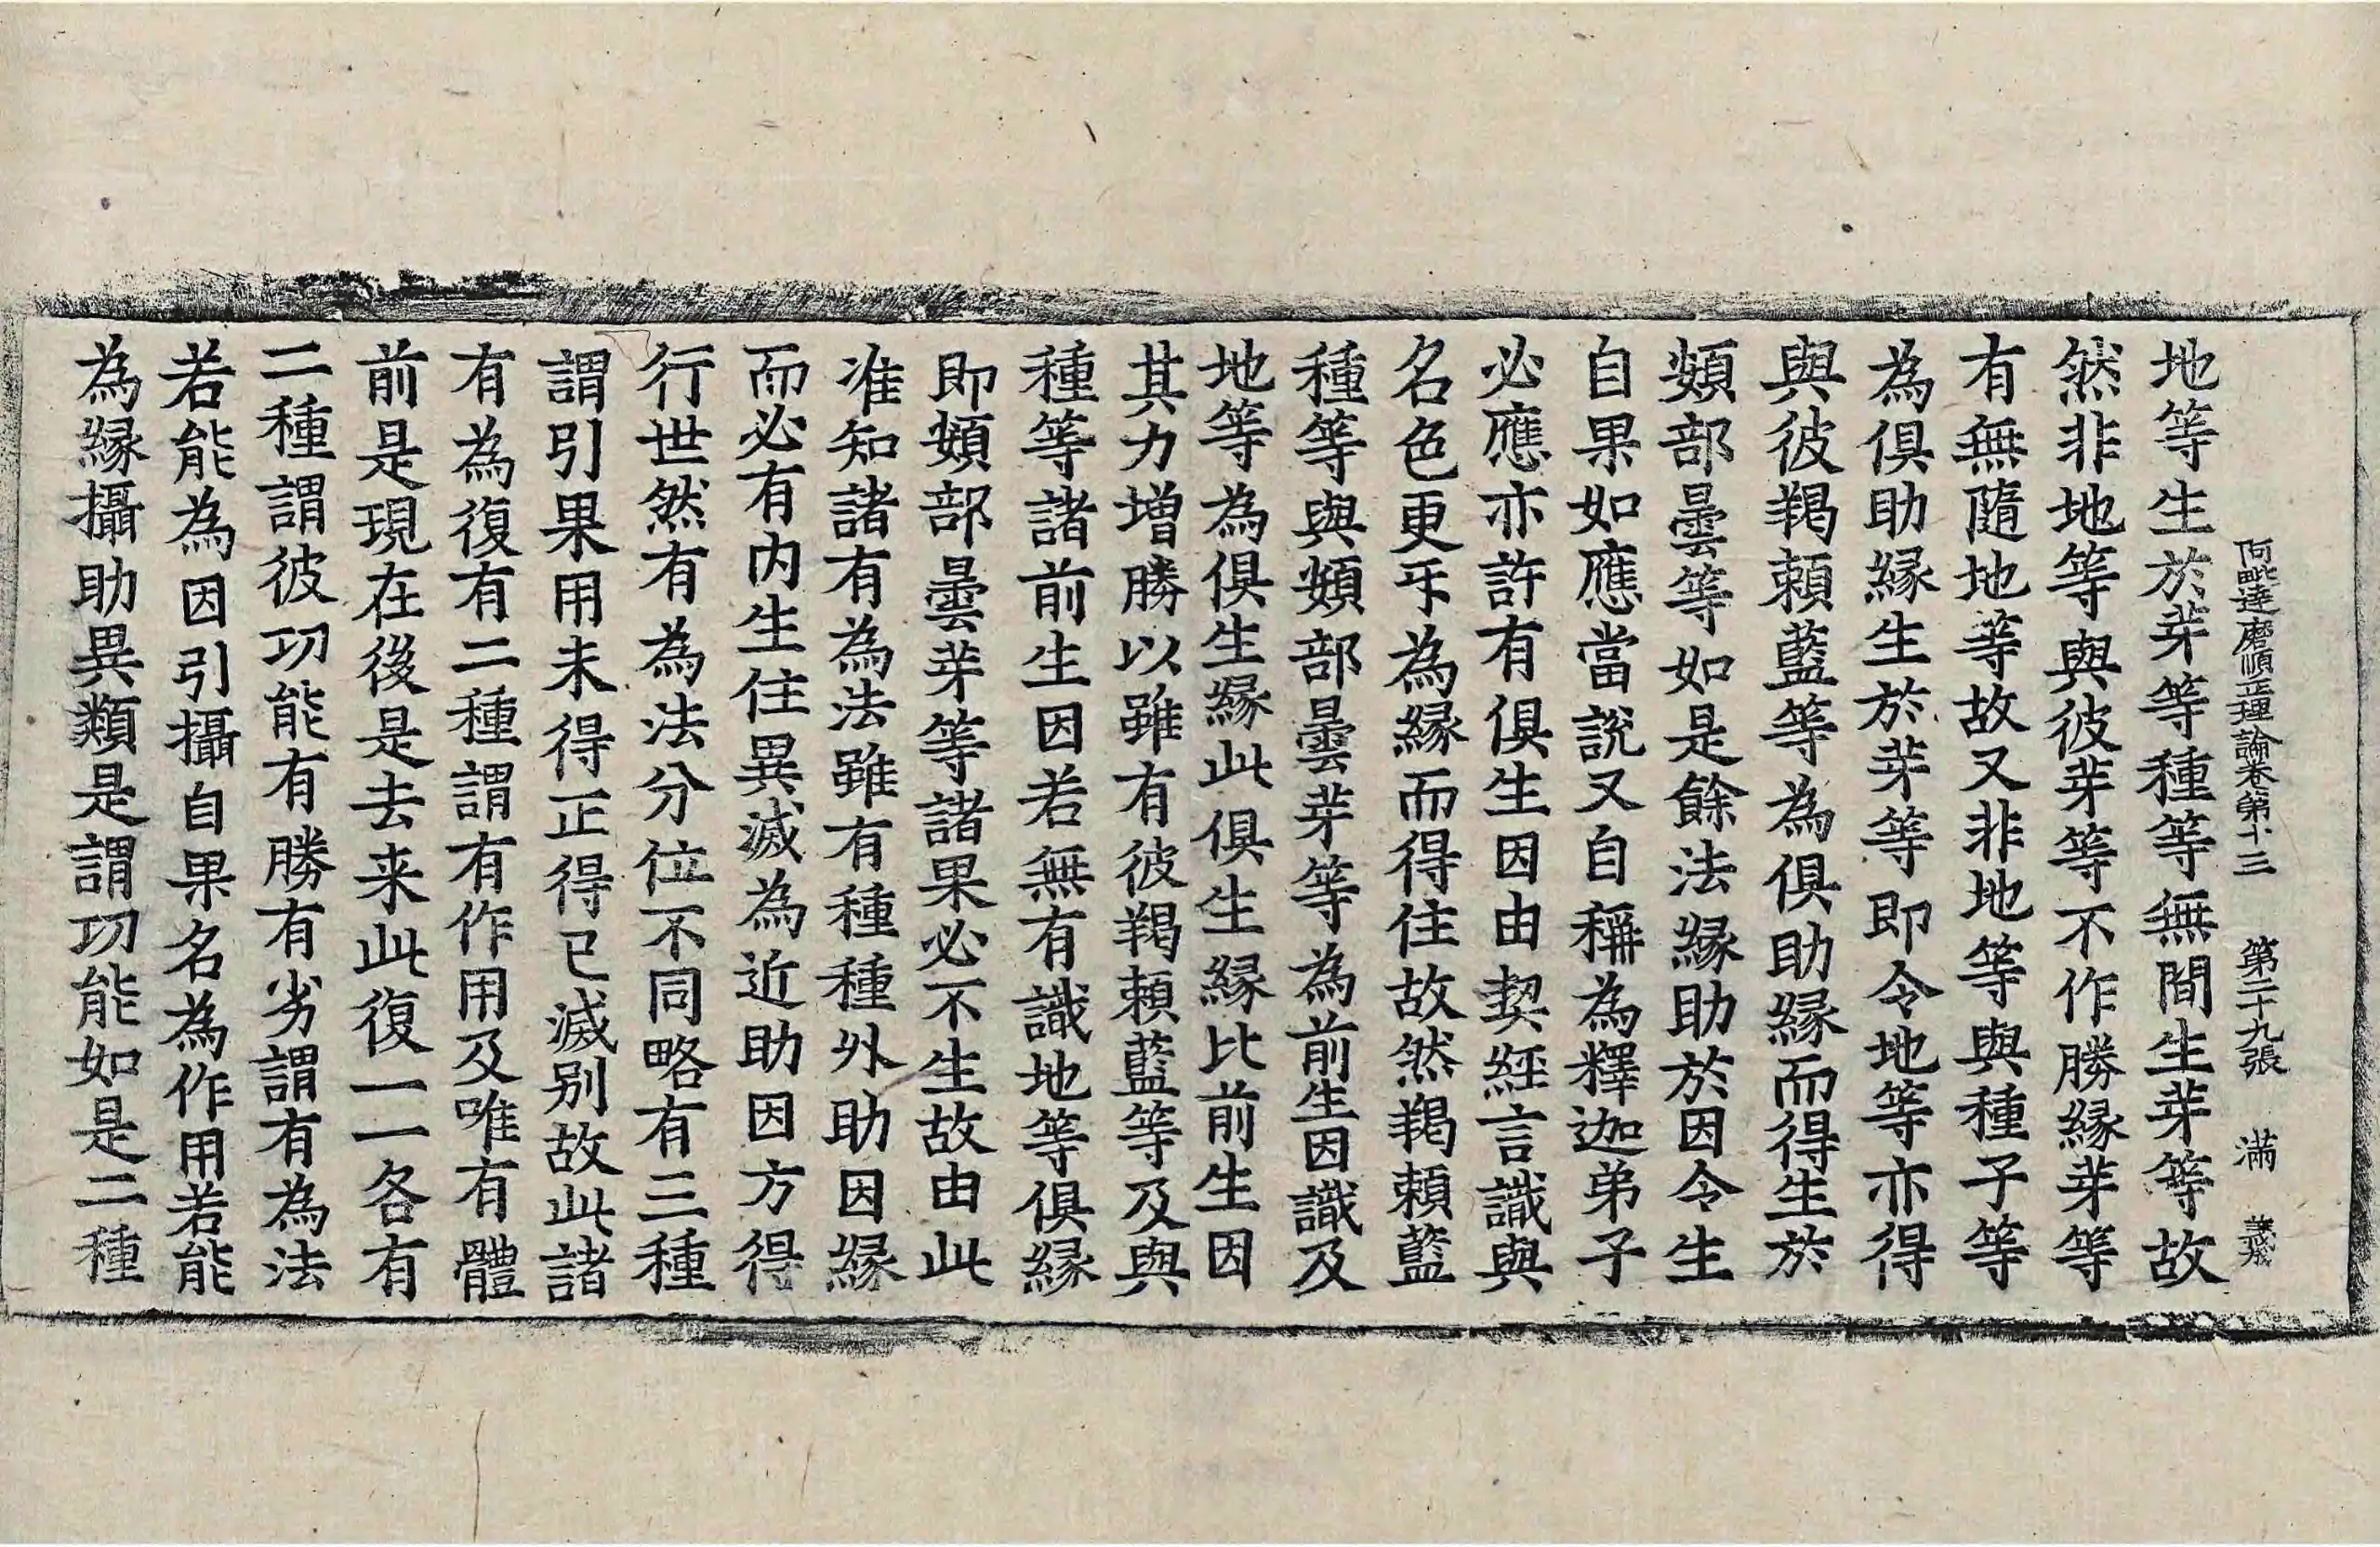 阿毗達磨順正理論卷第十三 第二十九張 滿
地等生於芽等種等無間生芽等故
然非地等與彼芽等不作勝縁芽等
有無隨地等故又非地等與種子等
為俱助縁生於芽等即令地等亦得
與彼羯頼藍等為俱助縁而得生於
頞部曇等如是餘法縁助於因令生
自果如應當說又自稱為釋迦弟子
必應亦許有俱生因由契經言識與
名色更互為縁而得住故然羯頼藍
種等與頞部曇芽等為前生因識及
地等為俱生縁此俱生縁比前生因
其力增勝以雖有彼羯頼藍等及與
種等諸前生因若無有識地等俱縁
即頞部曇芽等諸果必不生故由此
准知諸有為法雖有種種外助因縁
而必有内生住異滅為近助因方得
行世然有為法分位不同略有三種
謂引果用未得正得已滅别故此諸
有為復有二種謂有作用及唯有體
前是現在後是去来此復一一各有
二種謂彼功能有勝有劣謂有為法
若能為因引攝自果名為作用若能
為縁攝助異類是謂功能如是二種